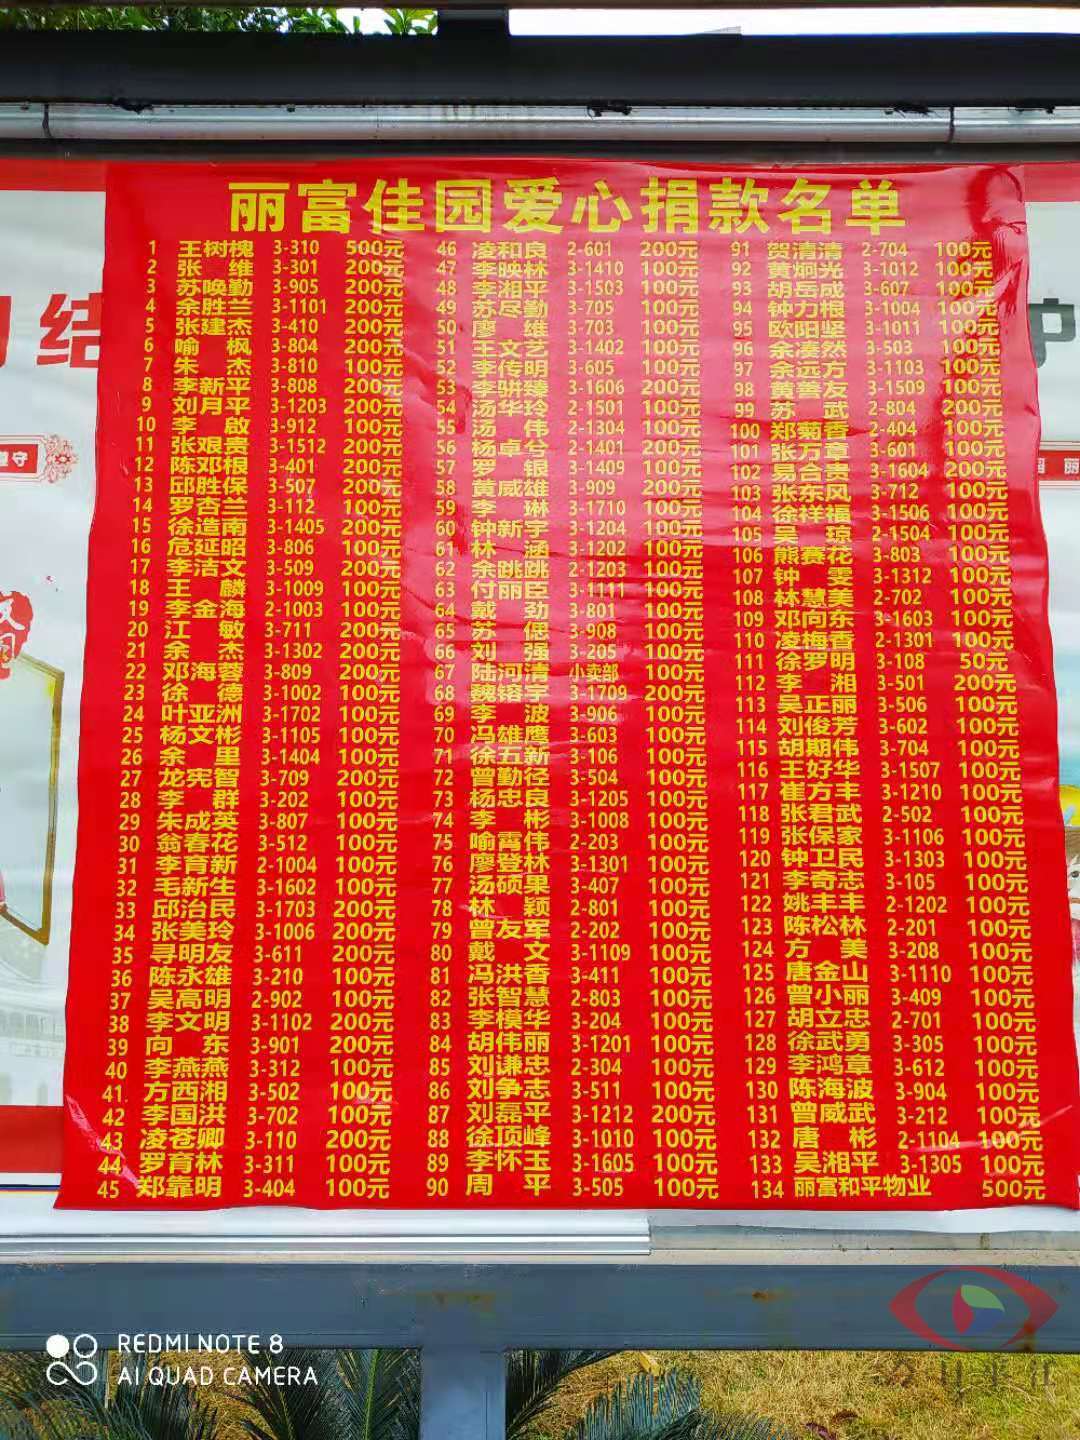 结
守
丽富佳园爱心捐款名单
1 王树槐 3-310 500元
2 张 维 3-301 200元
3 苏唤勤 3-905 200元
4 余胜兰 3-1101 200元
5 张建杰 3-410 200元
6 喻 枫 3-804 200元
7 朱 杰 3-810 100元
8 李新平 3-808 200元
9 刘月平 3-1203 200元
10 李 啟 3-912 100元
11 张艰贵 3-1512 200元
12 陈邓根 3-401 200元
13 邱胜保 3-507 200元
14 罗杏兰 3-112 100元
15 徐造南 3-1405 200元
16 危延昭 3-806 100元
17 李洁文 3-509 200元
18 王 麟 3-1009 100元
19 李金海 2-1003 100元
20 江 敏 3-711 200元
21 余 杰 3-1302 200元
22 邓海蓉 3-809 200元
23 徐 德 3-1002 100元
24 叶亚洲 3-1702 100元
25 杨文彬 3-1105 100元
26 余 里 3-1404 100元
27 龙宪智 3-709 200元
28 李 群 3-202 100元
29 朱成英 3-807 100元
30 翁春花 3-512 100元
31 李育新 2-1004 100元
32 毛新生 3-1602 100元
33 邱治民 3-1703 200元
34 张美玲 3-1006 200元
35 寻明友 3-611 200元
36 陈永雄 3-210 100元
37 吴高明 2-902 100元
38 李文明 3-1102 200元
39 向 东 3-901 200元
40 李燕燕 3-312 100元
41 方西湘 3-502 100元
42 李国洪 3-702 100元
43 凌苍卿 3-110 200元
44 罗育林 3-311 100元
45 郑靠明 3-404 100元
46 凌和良 2-601 200元
47 李映林 3-1410 100元
48 李湘平 3-1503 100元
49 苏尽勤 3-705 100元
50 廖 维 3-703 100元
51 王文艺 3-1402 100元
52 李传明 3-605 100元
53 李骈臻 3-1606 200元
54 汤华玲 2-1501 100元
55 汤 伟 2-1304 100元
56 杨卓兮 2-1401 200元
57 罗 银 3-1409 100元
58 黄威雄 3-909 200元
59 李 琳 3-1710 100元
60 钟新宇 3-1204 100元
61 林 涵 3-1202 100元
62 余跳跳 2-1203 100元
63 付丽臣 3-1111 100元
64 戴 劲 3-801 100元
65 苏 偲 3-908 100元
66 刘 强 3-205 100元
67 陆河清 小卖部 100元
68 魏镕宇 3-1709 200元
69 李 波 3-906 100元
70 冯雄鹰 3-603 100元
71 徐五新 3-106 100元
72 曾勤径 3-504 100元
73 杨忠良 3-1205 100元
74 李 彬 3-1008 100元
75 喻霄伟 2-203 100元
76 廖登林 3-1301 100元
77 汤硕果 3-407 100元
78 林 颖 2-801 100元
79 曾友军 2-202 100元
80 戴 文 3-1109 100元
81 冯洪香 3-411 100元
82 张智慧 2-803 100元
83 李模华 3-204 100元
84 胡伟丽 3-1201 100元
85 刘谦忠 2-304 100元
86 刘争志 3-511 100元
87 刘磊平 3-1212 200元
88 徐顶峰 3-1010 100元
89 李怀玉 3-1605 100元
90 周 平 3-505 100元
91 贺清清 2-704 100元
92 黄炯光 3-1012 100元
93 胡岳成 3-607 100元
94 钟力根 3-1004 100元
95 欧阳坚 3-1011 100元
96 余凑然 3-503 100元
97 余远方 3-1103 100元
98 黄善友 3-1509 100元
99 苏 武 2-804 200元
100 郑菊香 2-404 100元
101 张万章 3-601 100元
102 易合贵 3-1604 200元
103 张东风 3-712 100元
104 徐祥福 3-1506 100元
105 吴 琼 2-1504 100元
106 熊赛花 3-803 100元
107 钟 雯 3-1312 100元
108 林慧美 2-702 100元
109 邓向东 3-1603 100元
110 凌梅香 2-1301 100元
111 徐罗明 3-108 50元
112 李 湘 3-501 200元
113 吴正丽 3-506 100元
114 刘俊芳 3-602 100元
115 胡期伟 3-704 100元
116 王好华 3-1507 100元
117 崔方丰 3-1210 100元
118 张君武 2-502 100元
119 张保家 3-1106 100元
120 钟卫民 3-1303 100元
121 李奇志 3-105 100元
122 姚丰丰 2-1202 100元
123 陈松林 2-201 100元
124 方 美 3-208 100元
125 唐金山 3-1110 100元
126 曾小丽 3-409 100元
127 胡立忠 2-701 100元
128 徐武勇 3-305 100元
129 李鸿章 3-612 100元
130 陈海波 3-904 100元
131 曾威武 3-212 100元
132 唐 彬 2-1104 100元
133 吴湘平 3-1305 100元
134 丽富和平物业 500元
REDMI NOTE 8
AI QUAD CAMERA